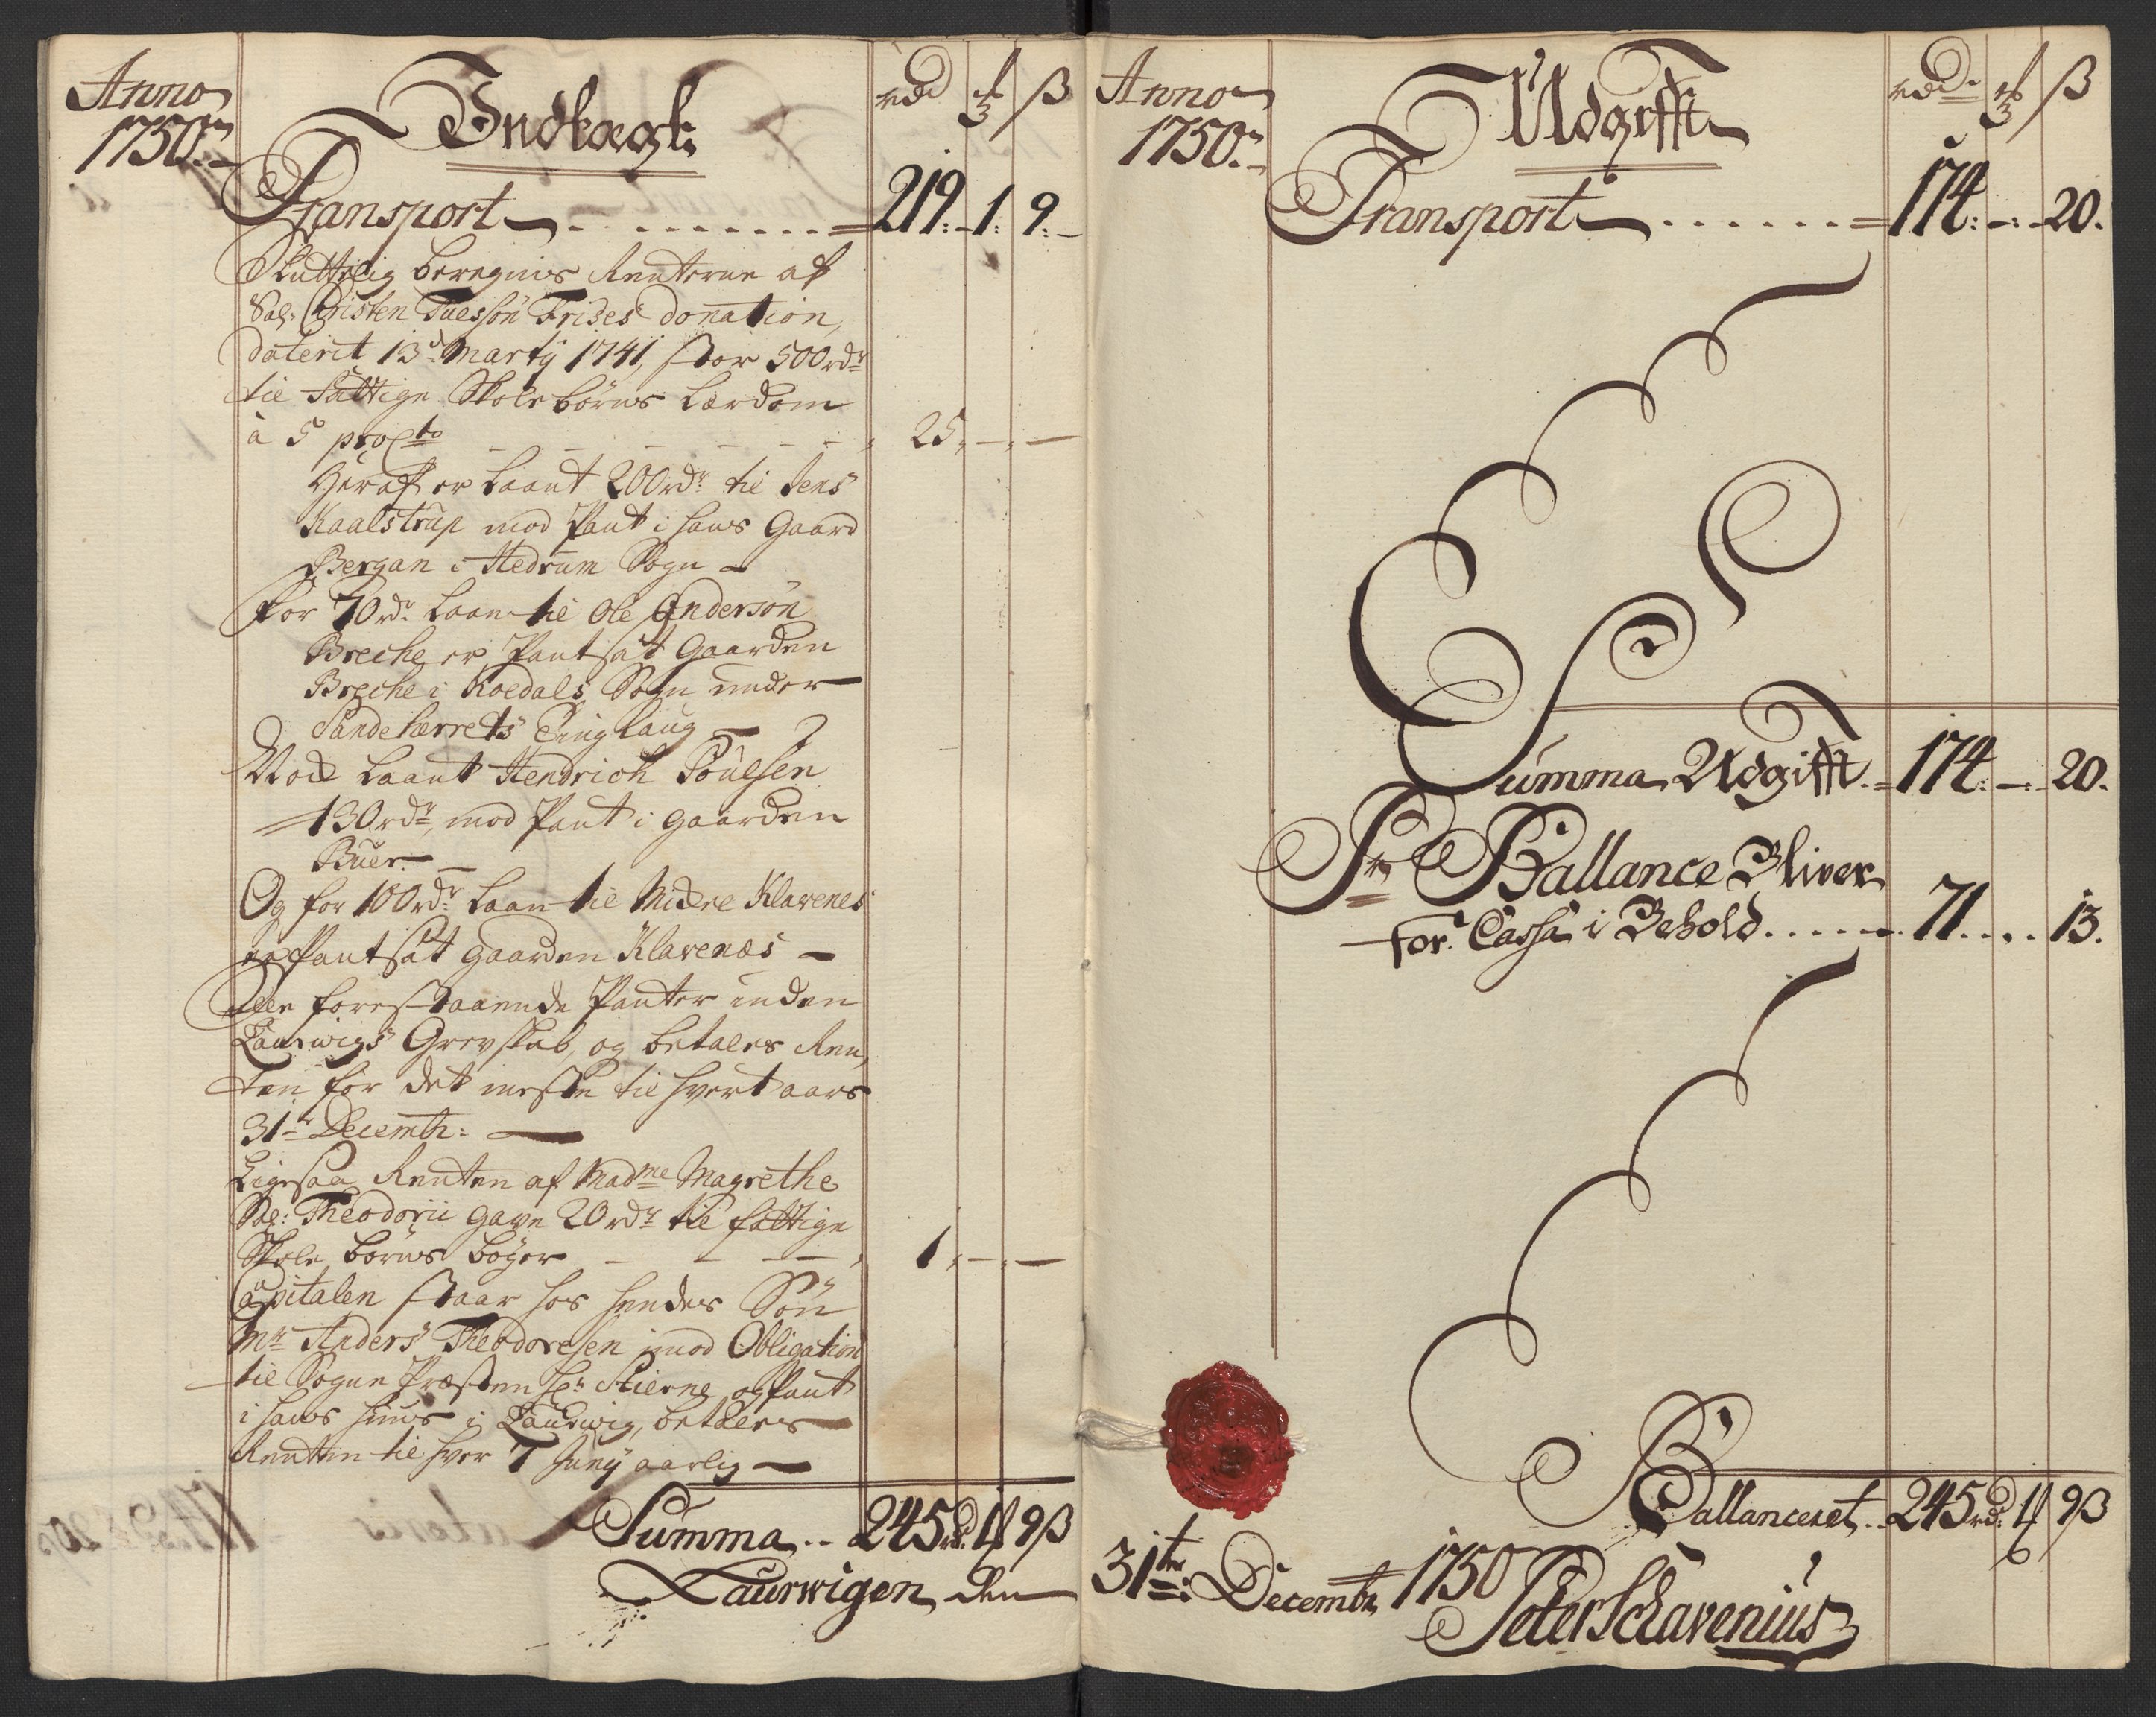 Anno
1750.
Indtægt.
rdr ß
Transport 219. 1. 9.
Sluttelig beregnes Renterne af
Sal: Christen Friises donation,
daterit 13d Martÿ 1741, stor 500 rdr
til fattige Skolebørns Lærdom
à 5 proCto 25, -, -
Heraf er laant 200 rdr til Jens
Kaalstrup mod Pant i hans Gaard
Bergan i Hedrum Sogn
for 70 rdr Laan til Ole Andersøn
Breche er Pantsat Gaarden
Breche i Koedals Sogn under
Sandeherrets Ting laug
Nock laant Hendrich Poulsen
130 rdr, mod Pant i gaarden
Buer
Og for 100 rdr Laan til Klavenes
er Pantsat gaarden Klavenæs
Alle forestaaende Panter inden
Laurwigs Grevskab, og betales Ren,
ten for det meste til hvert aars
31te Decembr:
Ligesaa Renten af Madme Magrethe
Sal: Theodorii gave 20 rdr til fattige
Skole børns bøger 1, -, -
Capitalen staar hos hendes Søn
Mr Anders Theodoresen imod Obligation
til Sogne Præsten Hr: Stierne og Pant
i hans huus i Laurwig, betales
Renten til hver 7 Junÿ aarlig
Summa .. 245 rd. 1 9 ß
Laurwigen den
Anno
1750.
Udgifft
rdr. ß
Transport 174. -. 20.
Summa Udgifft. 174. -. 20.
Pr Ballance Bliver
for Cassa i Behold...... 71.... 13.
Ballanceret .. 245 rd. 1 9 ß
31te: Decembr 1750
Peter Schavenius